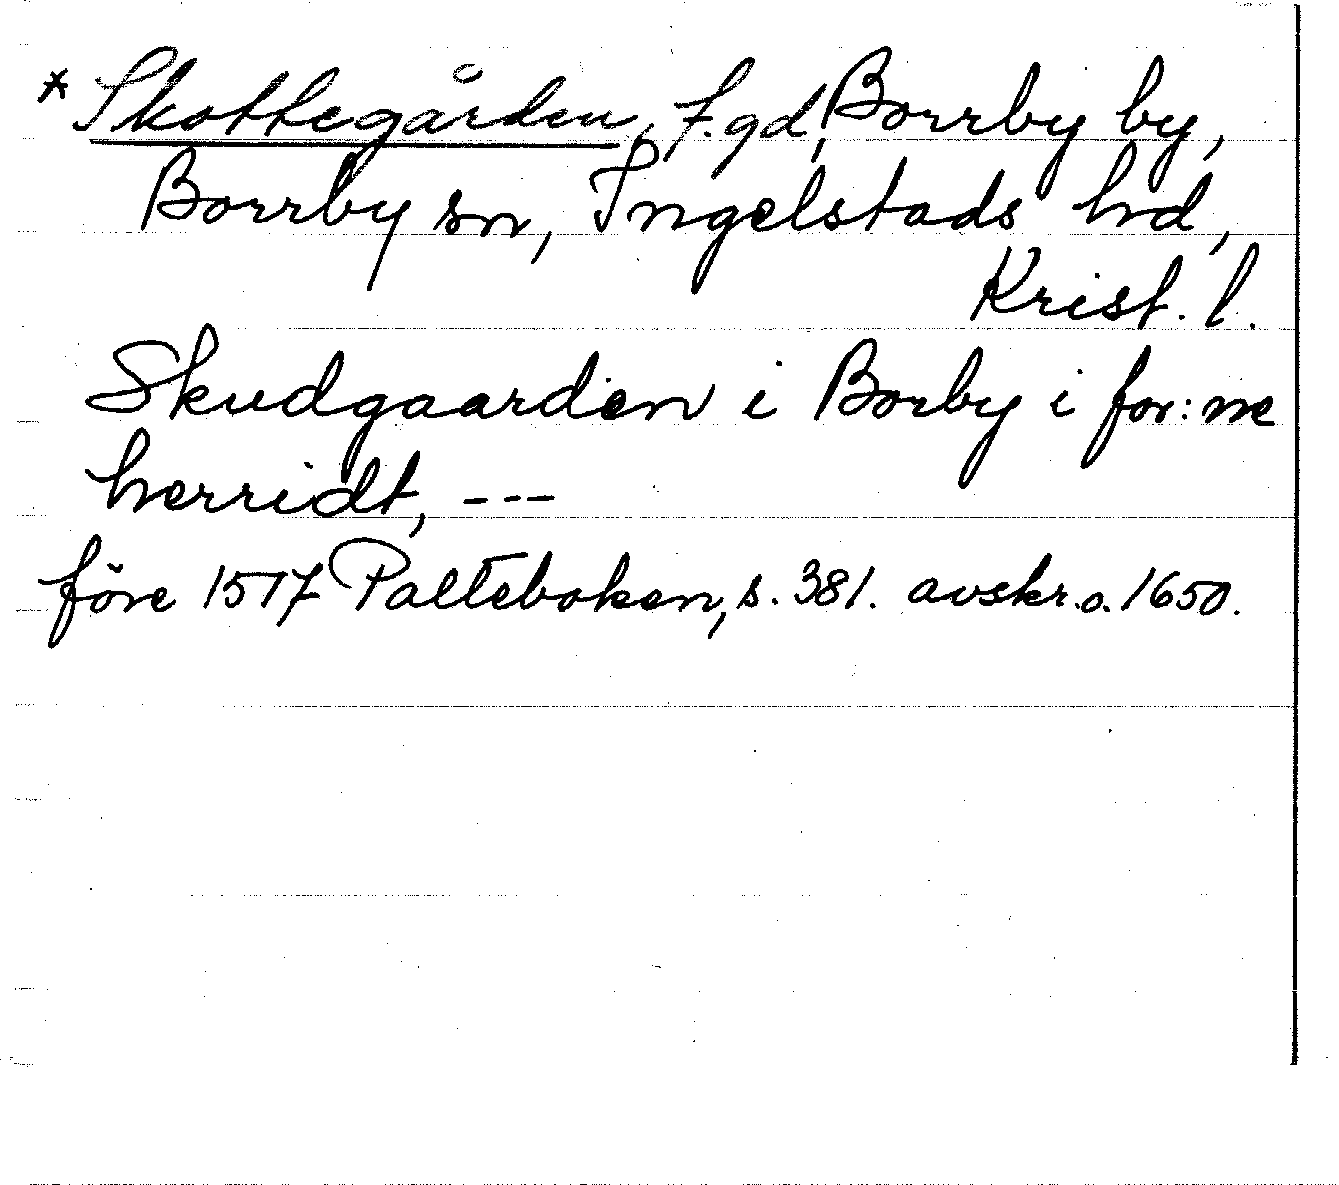 * Skottegården, f.gd, Borrby by,
Borrby sn, Ingelstads hd,
Krist. l.
Skudgaarden i Borby i for: ne
herridt, ---
före 1517 Palteboken, s. 381. avskr. o. 1650.